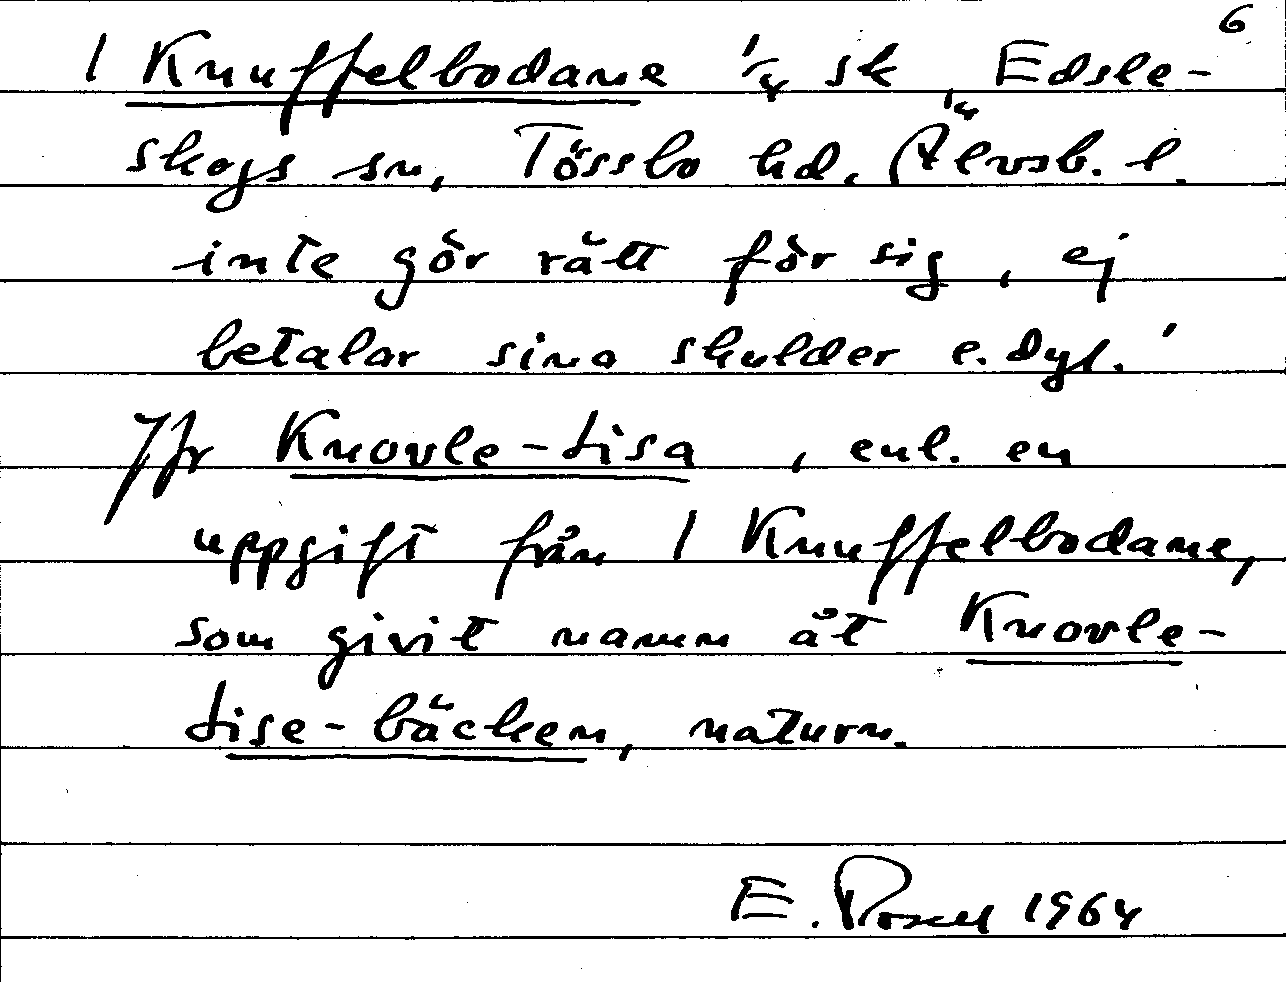 6
1 Knuffelbodane 1/4 sk Edsle-
skogs sn, Tössbo hd, Älvsb. l.
inte gör rätt för sig, ej
betalar sina skulder e. dyl.'
Jfr Knovle-Lisa, enl. en
uppgift från 1 Knuffelbodane,
som givit namn åt Knovle-
Lise-bäcken, naturn.
E. 1964